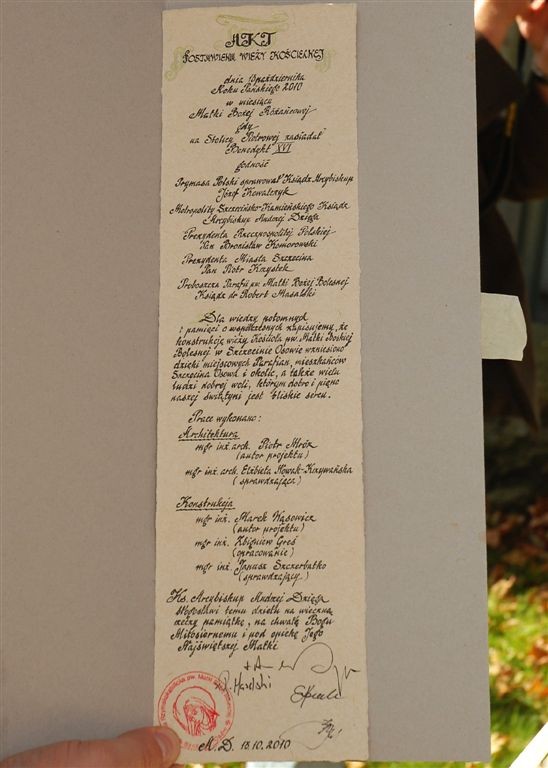 AKT
POSTAWIENIA WIEŻY KOŚCIELNEJ
dnia 13 października
Roku Pańskiego 2010
w miesiącu
Matki Bożej Różańcowej
gdy
na Stolicy Piotrowej zasiadał
Benedykt XVI
godność
Prymasa Polski sprawował Ksiądz Arcybiskup
Józef Kowalczyk
Metropolity Szczecińsko-Kamieńskiego Ksiądz
Arcybiskup Andrzej Dzięga
Prezydenta Rzeczpospolitej Polskiej
Pan Bronisław Komorowski
Prezydenta Miasta Szczecina
Pan Piotr Krzystek
Proboszcza Parafii pw. Matki Bożej Bolesnej
Ksiądz dr Robert Masalski
Dla wiedzy potomnych
i pamięci o współczesnych zapisujemy, że
konstrukcję wieży Kościoła pw. Matki Boskiej
Bolesnej w Szczecinie Osowie wzniesiono
dzięki miejscowych Parafian, mieszkańców
Szczecina Osowa i okolic, a także wielu
ludzi dobrej woli, którym dobro i piękno
naszej świątyni jest bliskie sercu.
Prace wykonano:
Architektura
mgr inż. arch. Piotr Mróz
(autor projektu)
mgr inż. arch. Elżbieta Nowak-Krzywańska
(sprawdzająca)
Konstrukcja
mgr inż. Marek Wąsowicz
(autor projektu)
mgr inż. Zbigniew Greś
(opracowanie)
mgr inż. Janusz Szczerbatko
(sprawdzający)
Ks. Arcybiskup Andrzej Dzięga
błogosławi temu dziełu na wieczną
rzeczy pamiątkę, na chwałę Bogu
Miłosiernemu i pod opiekę Jego
Najświętszej Matki
R. Masalski
A. D. 13.10.2010